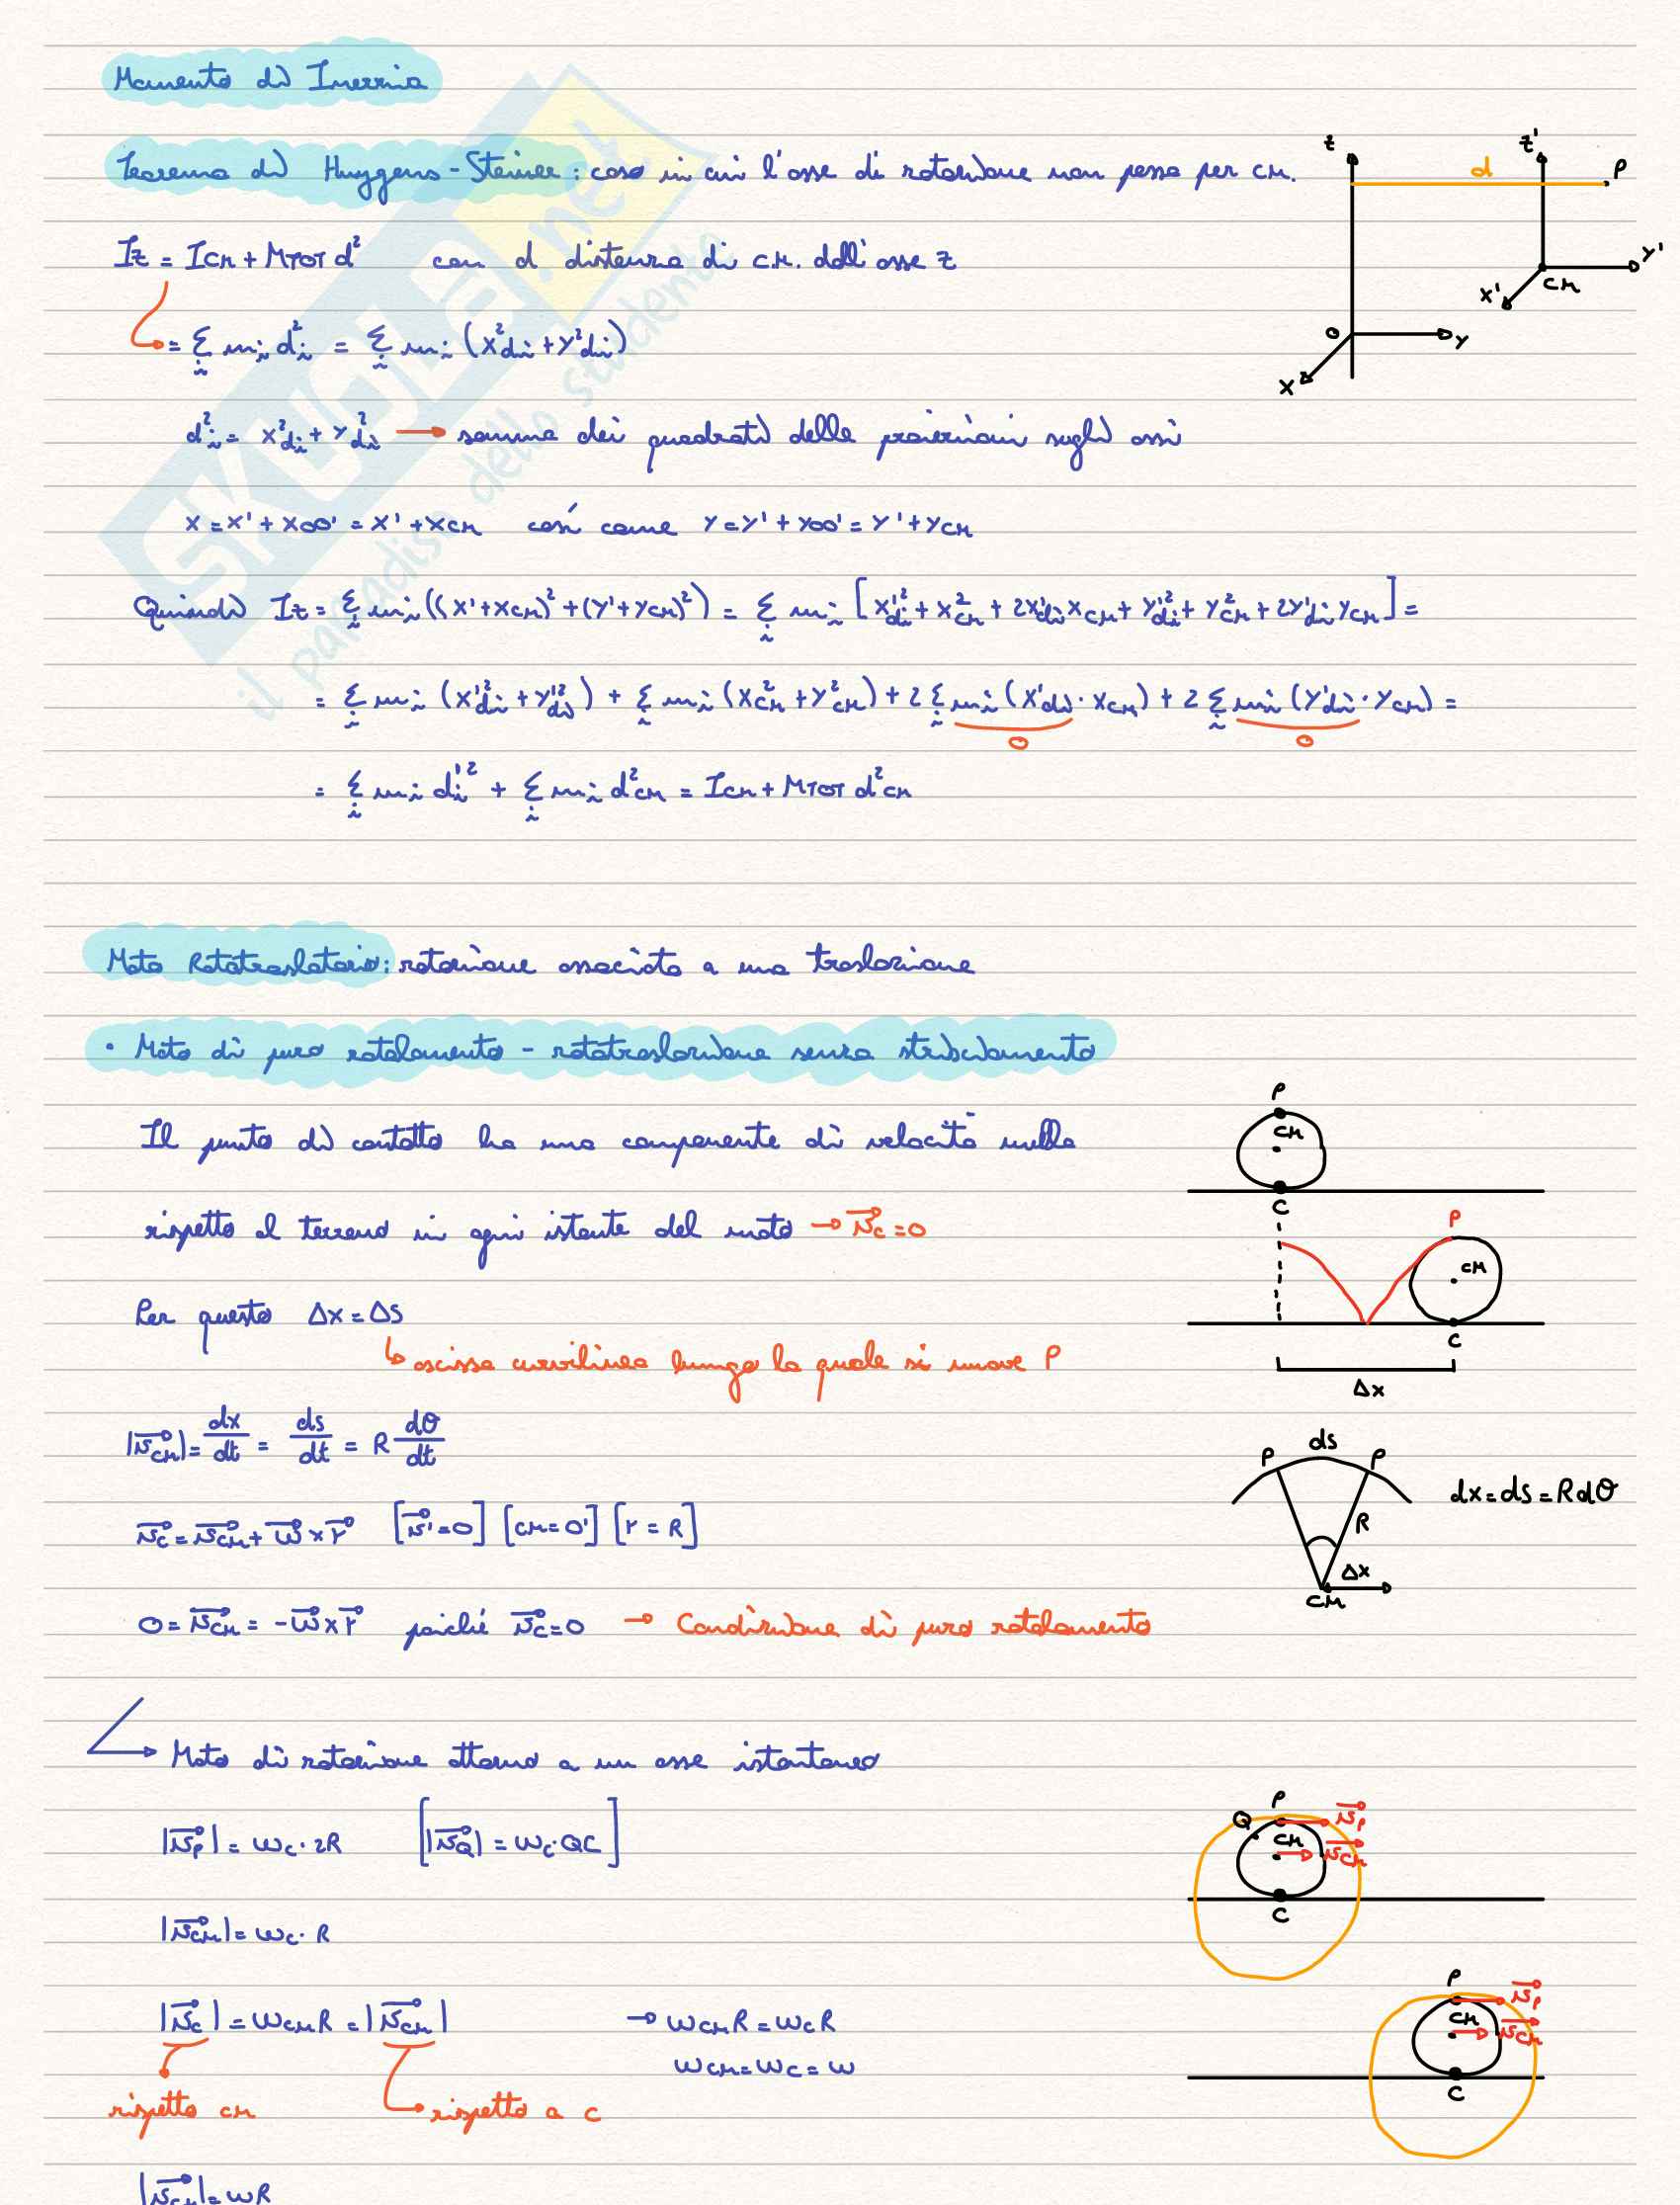 Momento di Inerzia
Teorema di Huygens-Steiner: caso in cui l'asse di rotazione non passa per CM.
Iz = ICM + MTOT d² con d distanza di C.M. dall'asse z
= Σi mi di² = Σi mi (x²di + y²di)
di² = x²di + y²di → somma dei quadrati delle proiezioni sugli assi
x = x' + xOO' = x' + xCM così come y = y' + yOO' = y' + yCM
Quindi Iz = Σi mi ((x' + xCM)² + (y' + yCM)²) = Σi mi [x'²di + x²CM + 2x'di xCM + y'²di + y²CM + 2y'di yCM] =
= Σi mi (x'²di + y'²di) + Σi mi (x²CM + y²CM) + 2 Σi mi (x'di · xCM) + 2 Σi mi (y'di · yCM) =
0 0
= Σi mi di'² + Σi mi d²CM = ICM + MTOT d²CM
z z' d P
y' x' CM
O y x
Moto Rototraslatorio: rotazione associata a una traslazione
• Moto di puro rotolamento - rototraslazione senza strisciamento
Il punto di contatto ha una componente di velocità nulla
rispetto al terreno in ogni istante del moto → v⃗C = 0
Per questo Δx = Δs
↳ ascissa curvilinea lungo la quale si muove P
|v⃗CM| = dx/dt = ds/dt = R dθ/dt
v⃗C = v⃗CM + ω⃗ × r⃗ [v⃗' = 0] [CM = O'] [r = R]
0 = v⃗CM = -ω⃗ × r⃗ poiché v⃗C = 0 → Condizione di puro rotolamento
P
CM
C
P
CM
C
Δx
P ds P
dx = ds = R dθ
R
Δx
CM
Moto di rotazione attorno a un asse istantaneo
|v⃗P| = ωC · 2R [|v⃗Q| = ωC · QC]
|v⃗CM| = ωC · R
|v⃗C| = ωCM R = |v⃗CM| → ωCM R = ωC R
ωCM = ωC = ω
rispetto CM rispetto a C
|v⃗CM| = ωR
P
Q v⃗P
CM v⃗CM
C
P
v⃗P
CM v⃗CM
C
SKUOLA.net
il paradiso dello studente